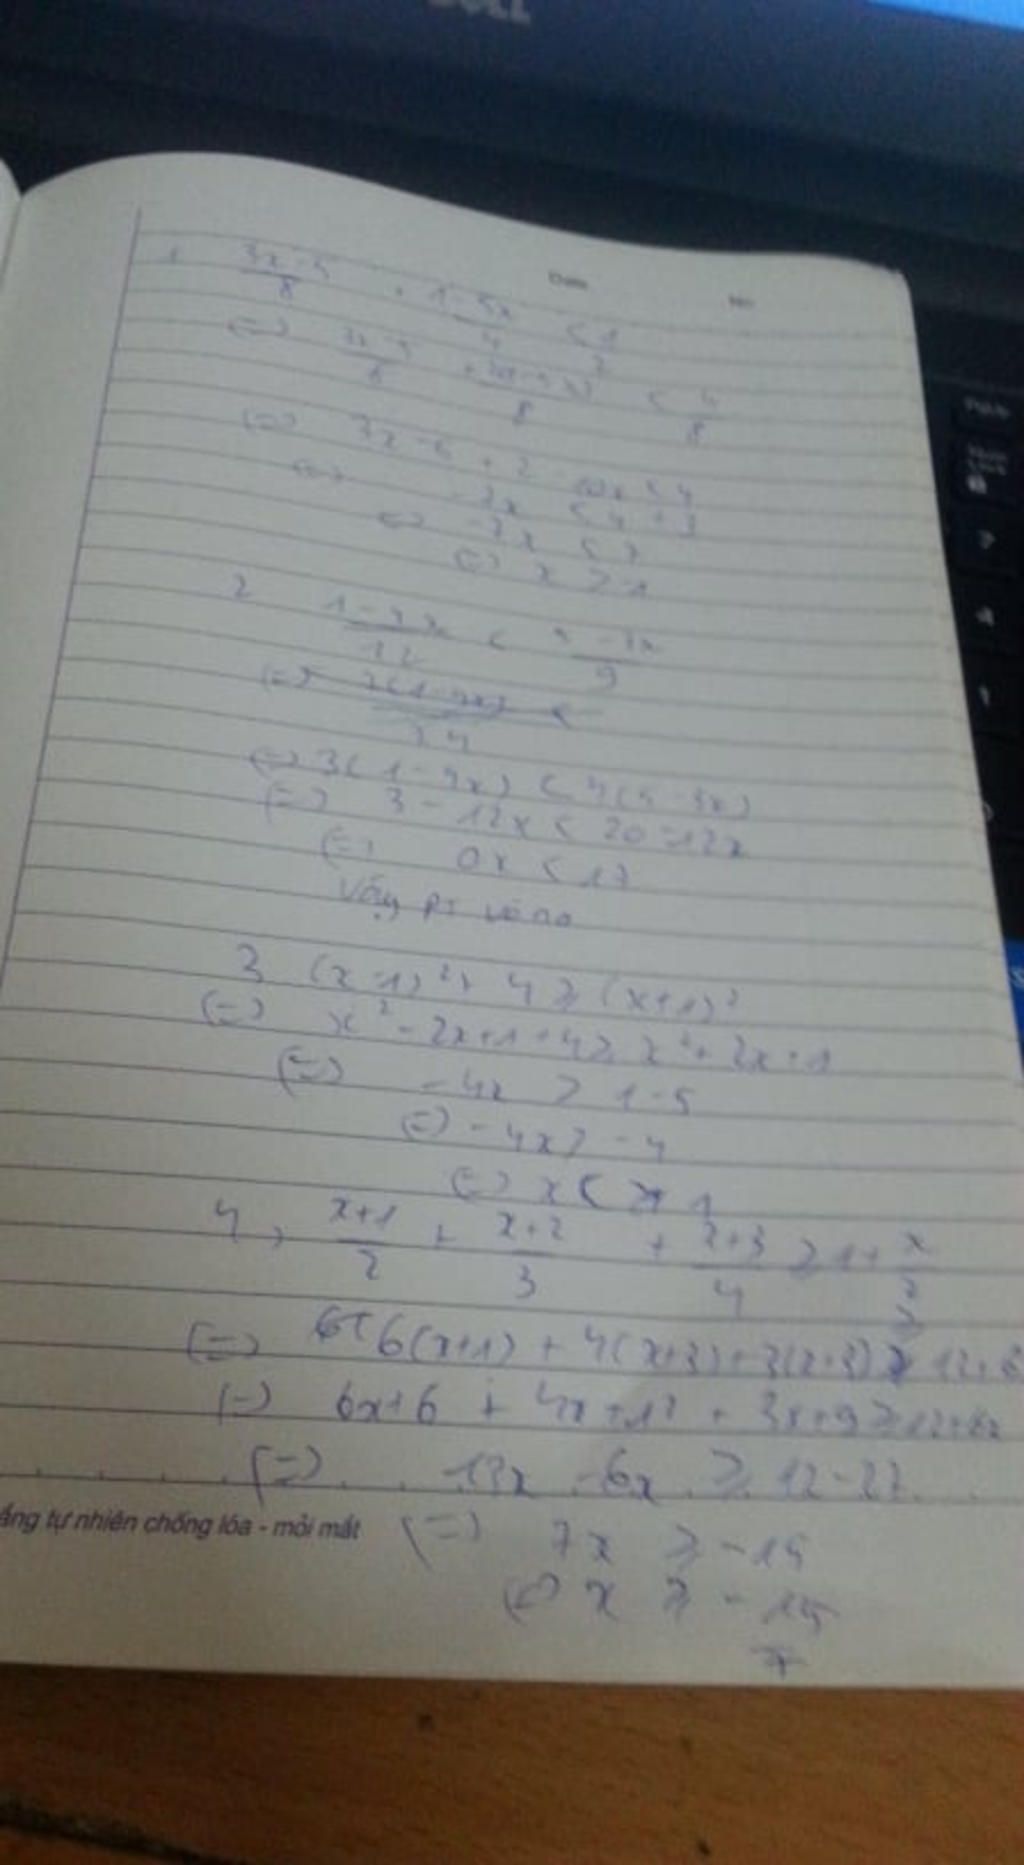 DELL
Date No
1 3x-5/8 + 1-5x/4 < 1/2
(=) 3x-5/8 + /8 < 4/8
(=) 3x-5 + 2 - 10x < 4
(=) -7x < 4 + 3
(=) -7x < 7
(=) x > -1
2 /12 < 5-3x/9
(=) /24 <
(=) 3(1-4x) < 4(5-3x)
(=) 3 - 12x < 20 - 12x
(=) 0x < 17
Vậy PT vô no
3 (x-1)² + 4 ≥ (x+1)²
(=) x² - 2x + 1 + 4 ≥ x² + 2x + 1
(=) -4x > 1-5
(=) -4x > -4
(=) x < 1
4, x+1/2 + x+2/3 + x+3/4 ≥ 1 + x/2
(=) 6(x+1) + 4(x+3) + 3(x+3) ≥ 12 + 6
(=) 6x+6 + 4x+12 + 3x+9 ≥ 12+6x
(=) 13x - 6x ≥ 12-27
ắng tự nhiên chống lóa - mỏi mắt
(=) 7x ≥ -15
(=) x ≥ -15/7